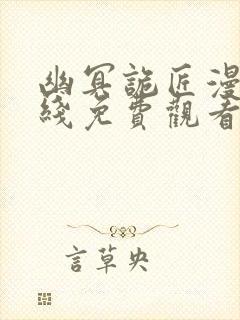 幽冥詭匠漫
綫免費觀看
言草央